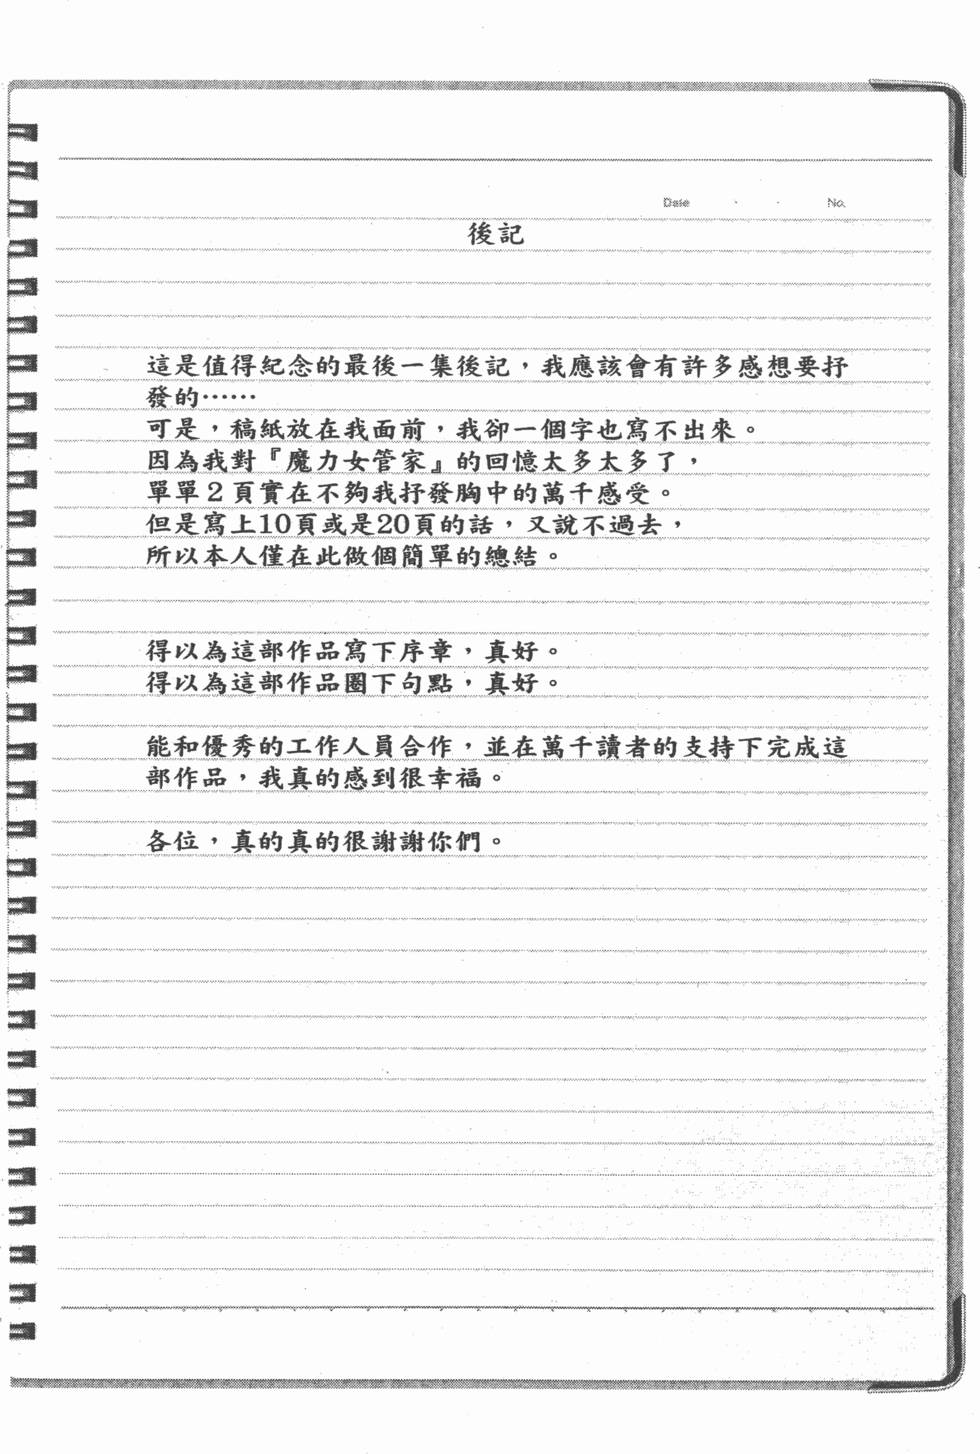 Date
No.
後記
這是值得紀念的最後一集後記，我應該會有許多感想要抒
發的……
可是，稿紙放在我面前，我卻一個字也寫不出來。
因為我對『魔力女管家』的回憶太多太多了，
單單２頁實在不夠我抒發胸中的萬千感受。
但是寫上10頁或是20頁的話，又說不過去，
所以本人僅在此做個簡單的總結。
得以為這部作品寫下序章，真好。
得以為這部作品圈下句點，真好。
能和優秀的工作人員合作，並在萬千讀者的支持下完成這
部作品，我真的感到很幸福。
各位，真的真的很謝謝你們。